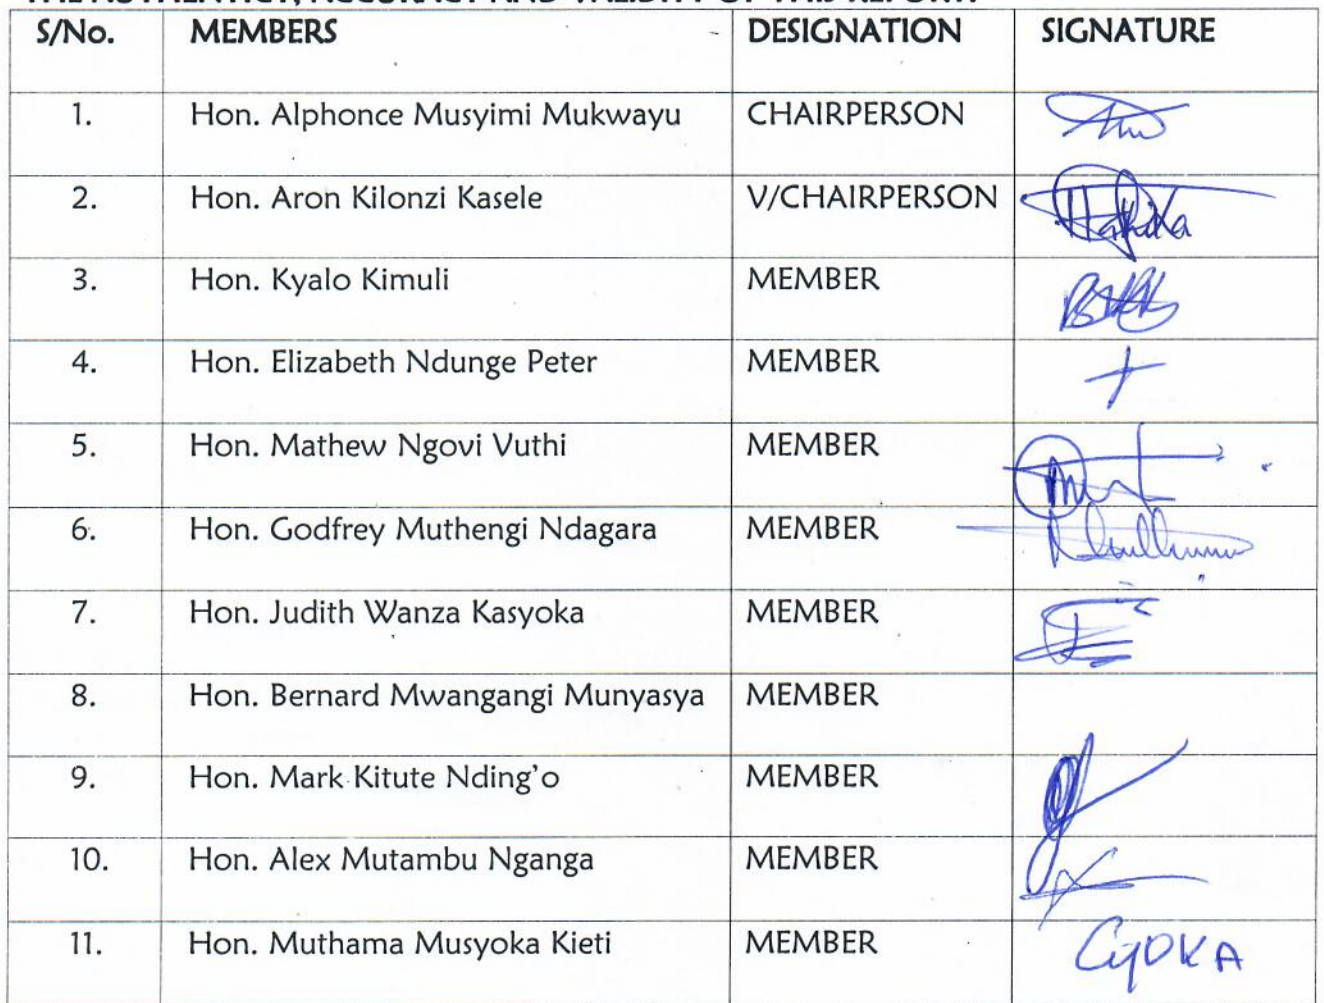 THE AUTHENTICY, ACCURACY AND VALIDITY OF THIS REPORT:
S/No. MEMBERS DESIGNATION SIGNATURE
1. Hon. Alphonce Musyimi Mukwayu CHAIRPERSON
2. Hon. Aron Kilonzi Kasele V/CHAIRPERSON
3. Hon. Kyalo Kimuli MEMBER
4. Hon. Elizabeth Ndunge Peter MEMBER
5. Hon. Mathew Ngovi Vuthi MEMBER
6. Hon. Godfrey Muthengi Ndagara MEMBER
7. Hon. Judith Wanza Kasyoka MEMBER
8. Hon. Bernard Mwangangi Munyasya MEMBER
9. Hon. Mark Kitute Nding'o MEMBER
10. Hon. Alex Mutambu Nganga MEMBER
11. Hon. Muthama Musyoka Kieti MEMBER